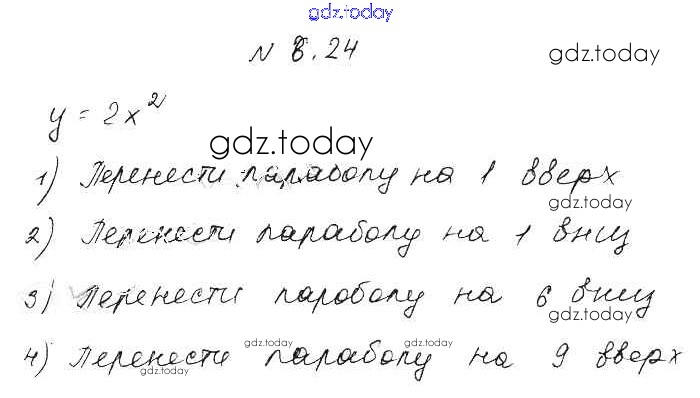 gdz.today
N 8.24
gdz.today
y = 2x²
gdz.today
1) Перенести параболу на 1 вверх
gdz.today
2) Перенести параболу на 1 вниз
3) Перенести пароболу на 6 вниз
gdz.today
gdz.today gdz.today
4) Перенести параболу на 9 вверх
gdz.today